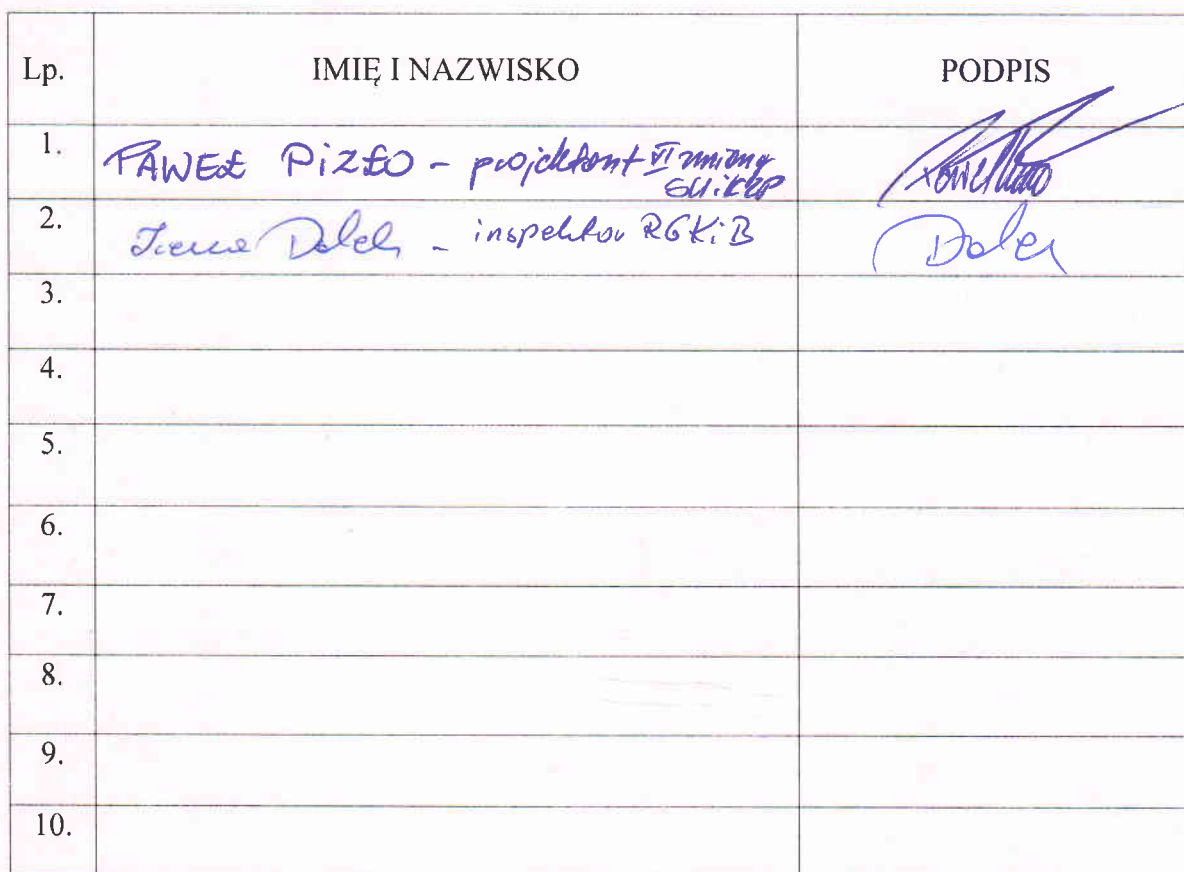 Lp. IMIĘ I NAZWISKO PODPIS
1. PAWEŁ PIZŁO - projektant VI zmiany
SUiKZP
2. Irena Dolech - inspektor RGKiB
3.
4.
5.
6.
7.
8.
9.
10.